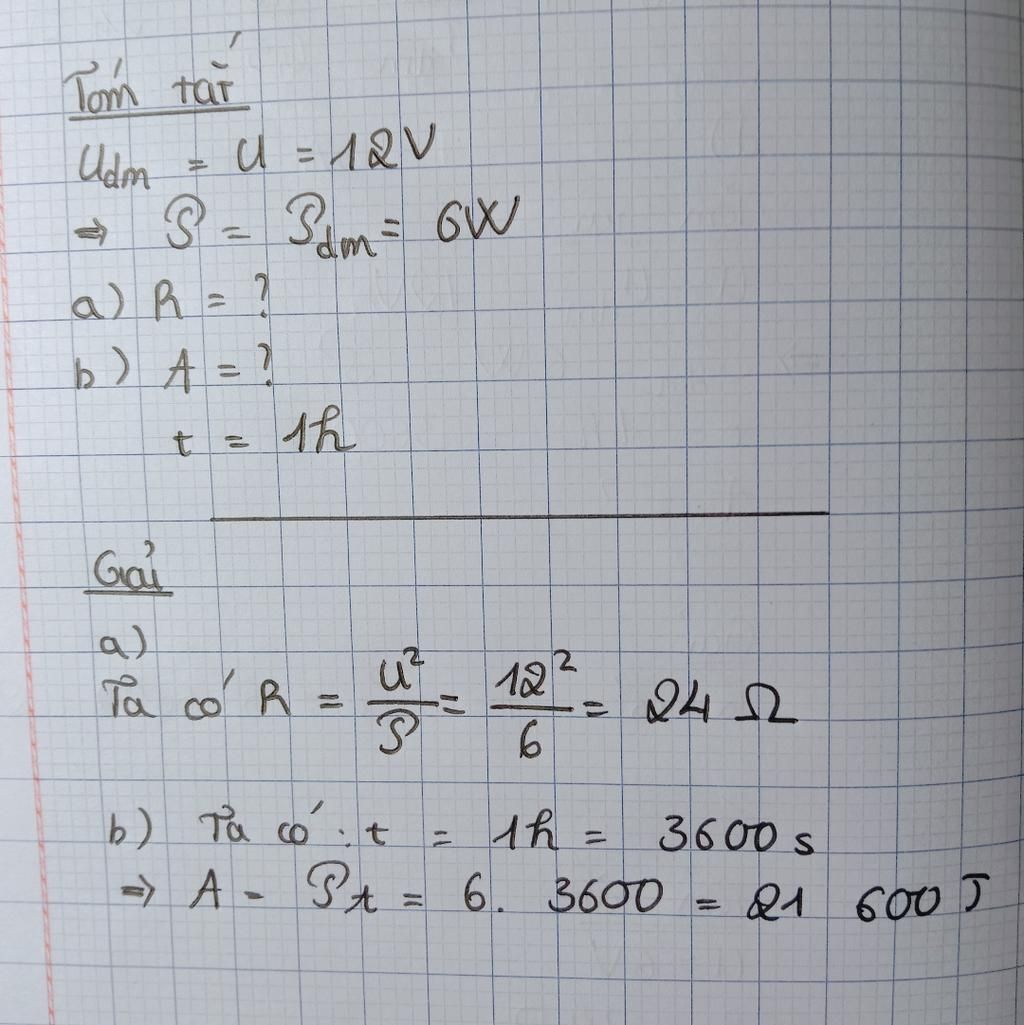 Tóm tắt
Udm = U = 12V
⇒ P = Pdm = 6W
a) R = ?
b) A = ?
t = 1h
Giải
a)
Ta có R = U²/P = 12²/6 = 24 Ω
b) Ta có : t = 1h = 3600 s
⇒ A = Pt = 6. 3600 = 21 600 J